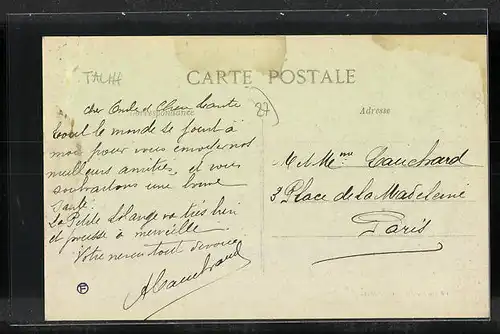 CARTE POSTALE
Correspondance
Adresse
27
Cher Oncle et Chère Tante
tout le monde se joint à
moi pour vous envoyer nos
meilleurs amitiés, et vous
souhaitons une bonne
santé.
La Petite Solange va très bien
et pousse à merveille
Votre neveu tout dévoué
M et Mme Tauchard
3 Place de La Madeleine
Paris